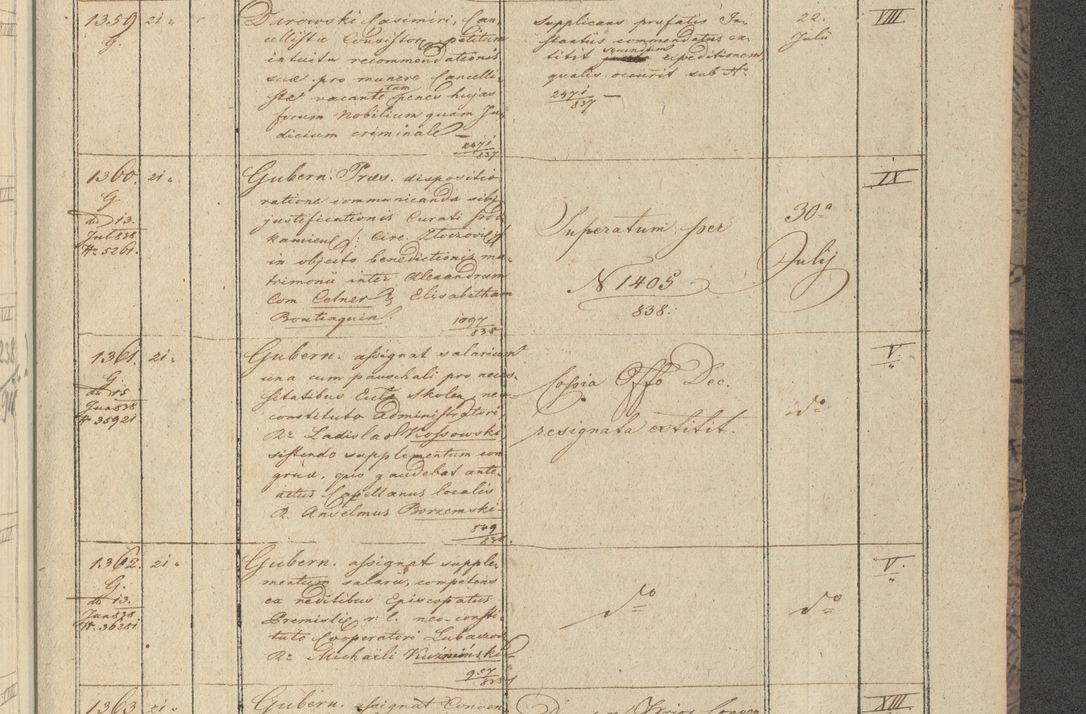 1359 21 „
G.
Durowski Casimiri, Can-
cellistæ Consistor. petitum
intuitu recommendationis
suæ pro munere Cancelli-
stæ vacante tam penes hujas
forum Nobilium quam Ju-
dicium criminale —
2471/837
Supplicans prefatis In-
stantiis commendatus ex-
titit secundum expeditionem
qualis occurit sub Nr.
2471/837 —
22.
Julii
VIII
1360. 21 „
G.
dto 13.
Jul 838
Nr. 5261.
Gubern. Præs. dispositio
ratione communicandæ sibi
justificationis Curati Pod-
kamien /: Circ. Zloczov :/
in objecto benedictionis ma-
trimonii inter Alexandrum
Com Cetner & Elisabetham
1097/838
Superatum per
N 1405
838.
30a
Julij
IX
1361. 21 „
G.
dto 15
Jun 838
Nr. 35921
Gubern. assignat salarium
una cum pauschali pro neces-
sitatibus Cultus Skolen. neo-
constituto Administratori
R. Ladislao Kossowski
sistendo supplementum con-
gruæ, quo gaudebat ante-
actus Capellanus localis
R. Anselmus Borzemski
549/838
Copia Offo Dec.
resignata extitit.
do
V.
„
1362. 21 „
G.
dto 13.
Jun 838
Nr. 36351
Gubern. assignat supple-
mentum salarii, competens
ex reditibus Episcopatus
Premislie r. l. neo-consti-
tuto Cooperatori Lubaczov
R. Michaeli Kuzminski
957/838
do
do
V.
„
1363. 21 „
Gubern. assignat Conven
Prior Conven
XIII